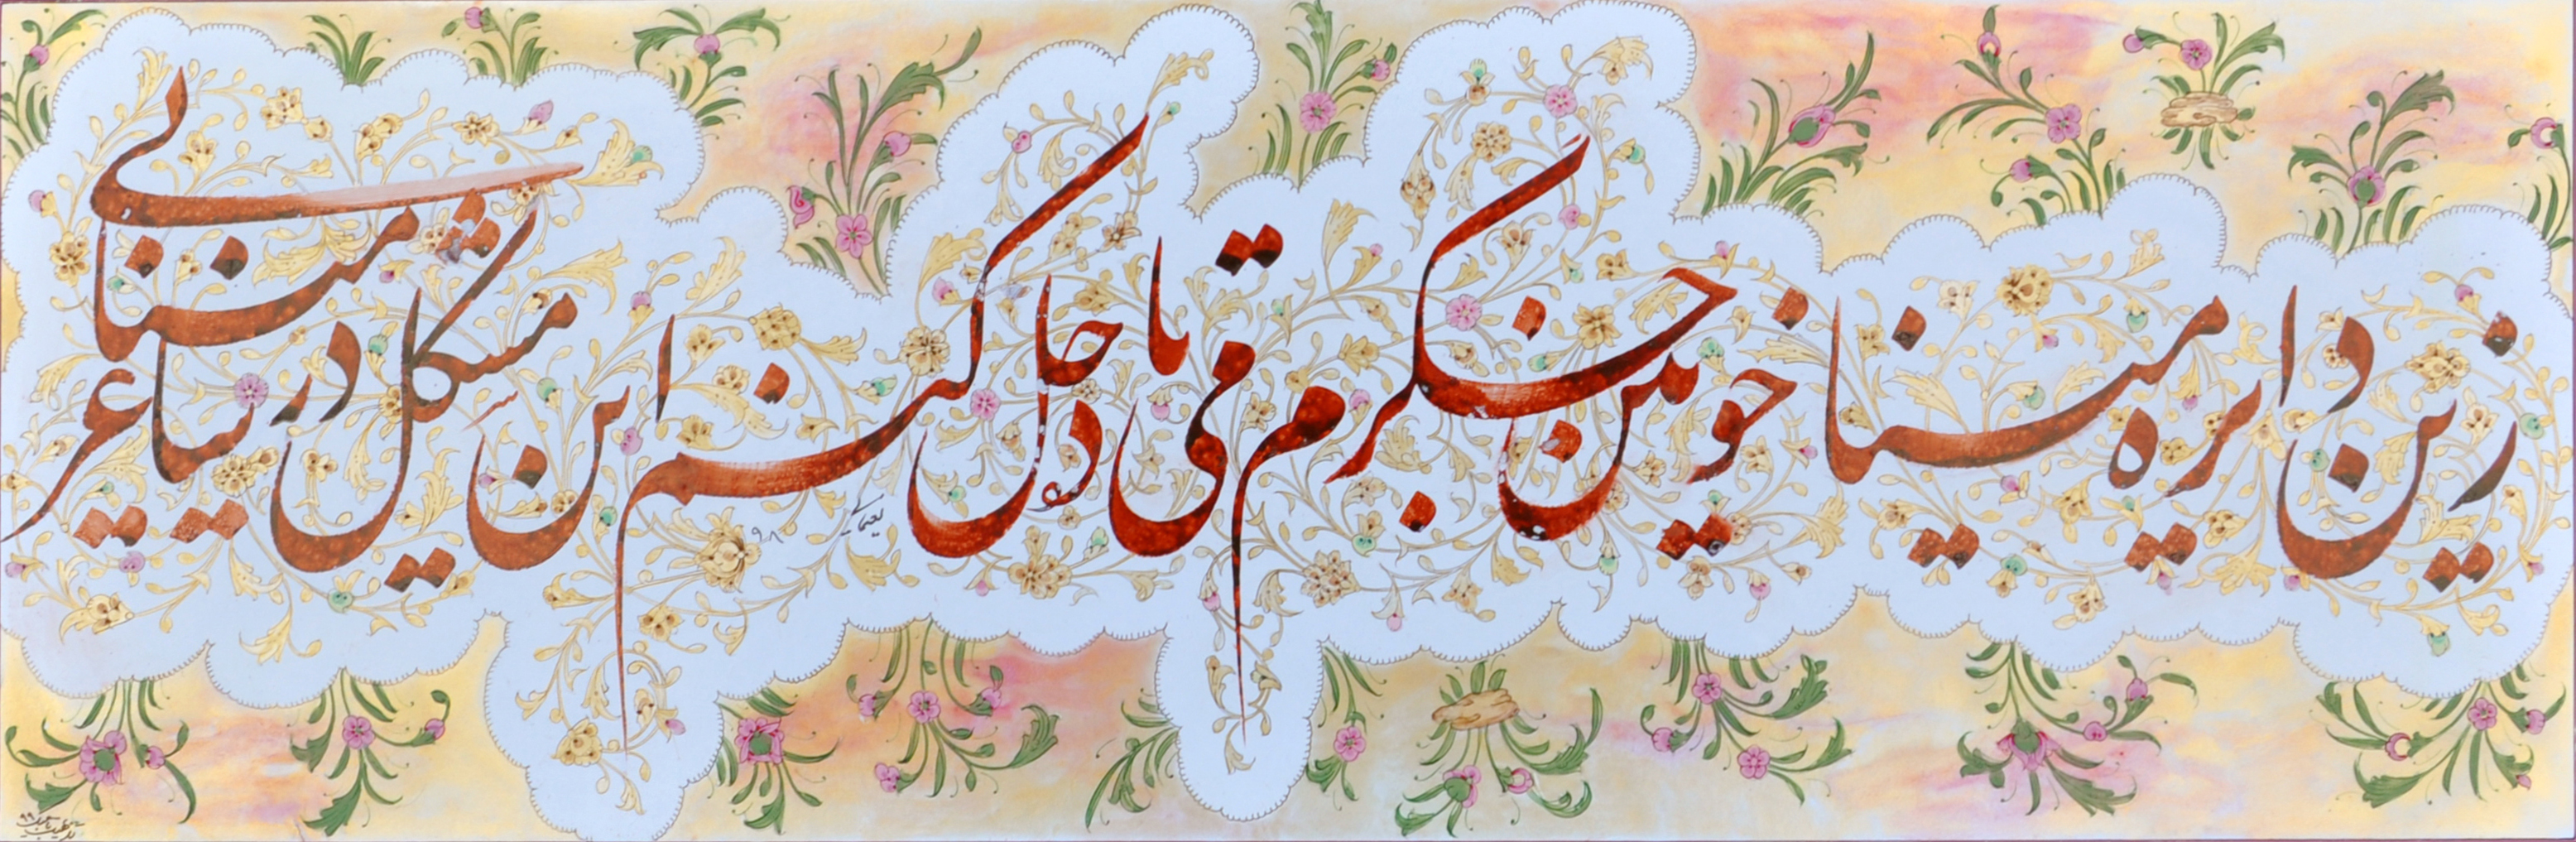 زین دایره مینا خونین جگرم می ده
تا حل کنم این مشکل در ساغر مینایی
یغمایی
۹۸